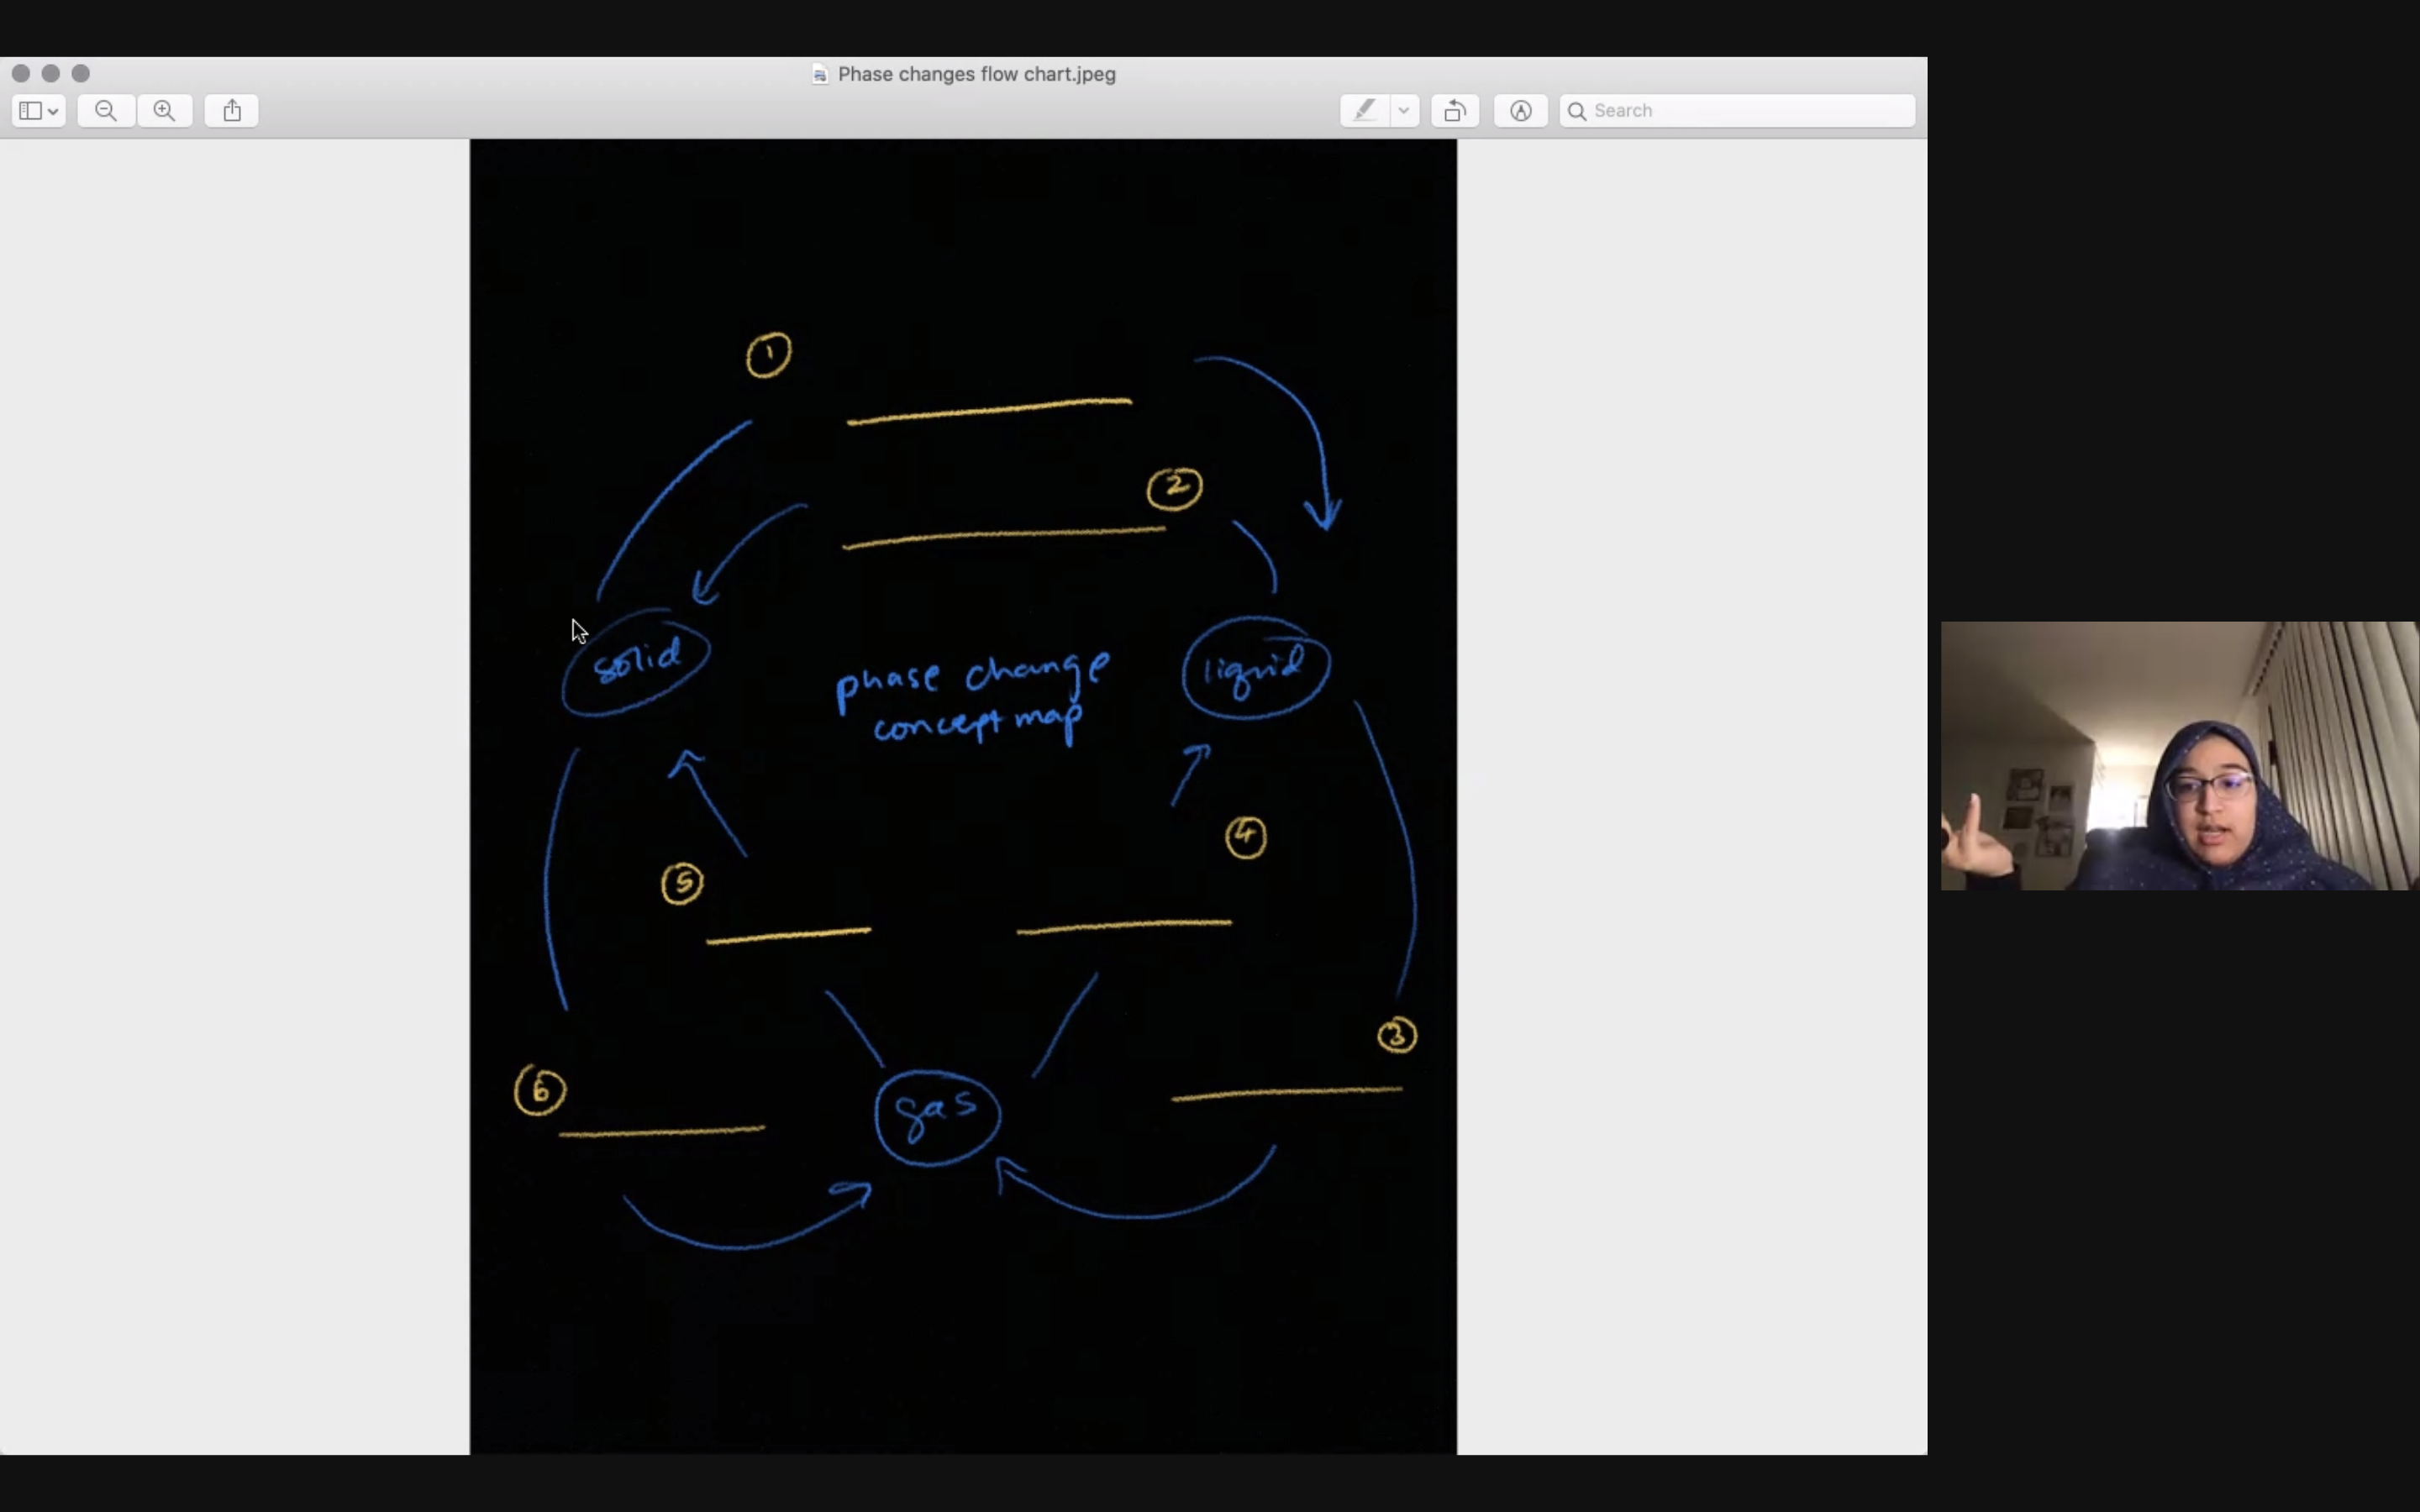 Phase changes flow chart.jpeg
Search
1
2
solid
phase change
concept map
liquid
4
5
3
6
gas